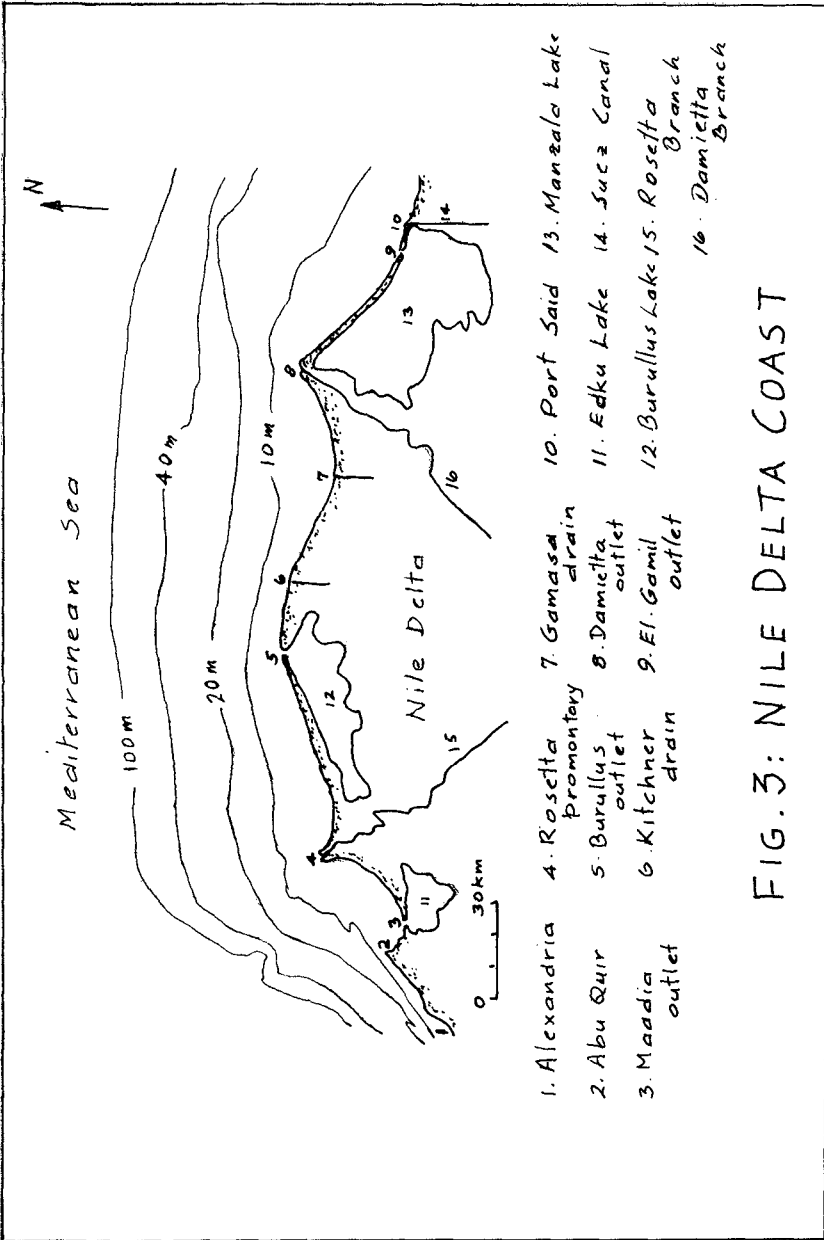 N
Mediterranean Sea
100m
40m
20m
10m
1
2
3
4
5
6
7
8
9
10
11
12
13
14
15
16
Nile Delta
0 30km
1. Alexandria
2. Abu Quir
3. Maadia
outlet
4. Rosetta
promontory
5. Burullus
outlet
6. Kitchner
drain
7. Gamasa
drain
8. Damietta
outlet
9. El. Gamil
outlet
10. Port Said
11. Edku Lake
12. Burullus Lake
13. Manzala Lake
14. Suez Canal
15. Rosetta
Branch
16. Damietta
Branch
FIG. 3: NILE DELTA COAST